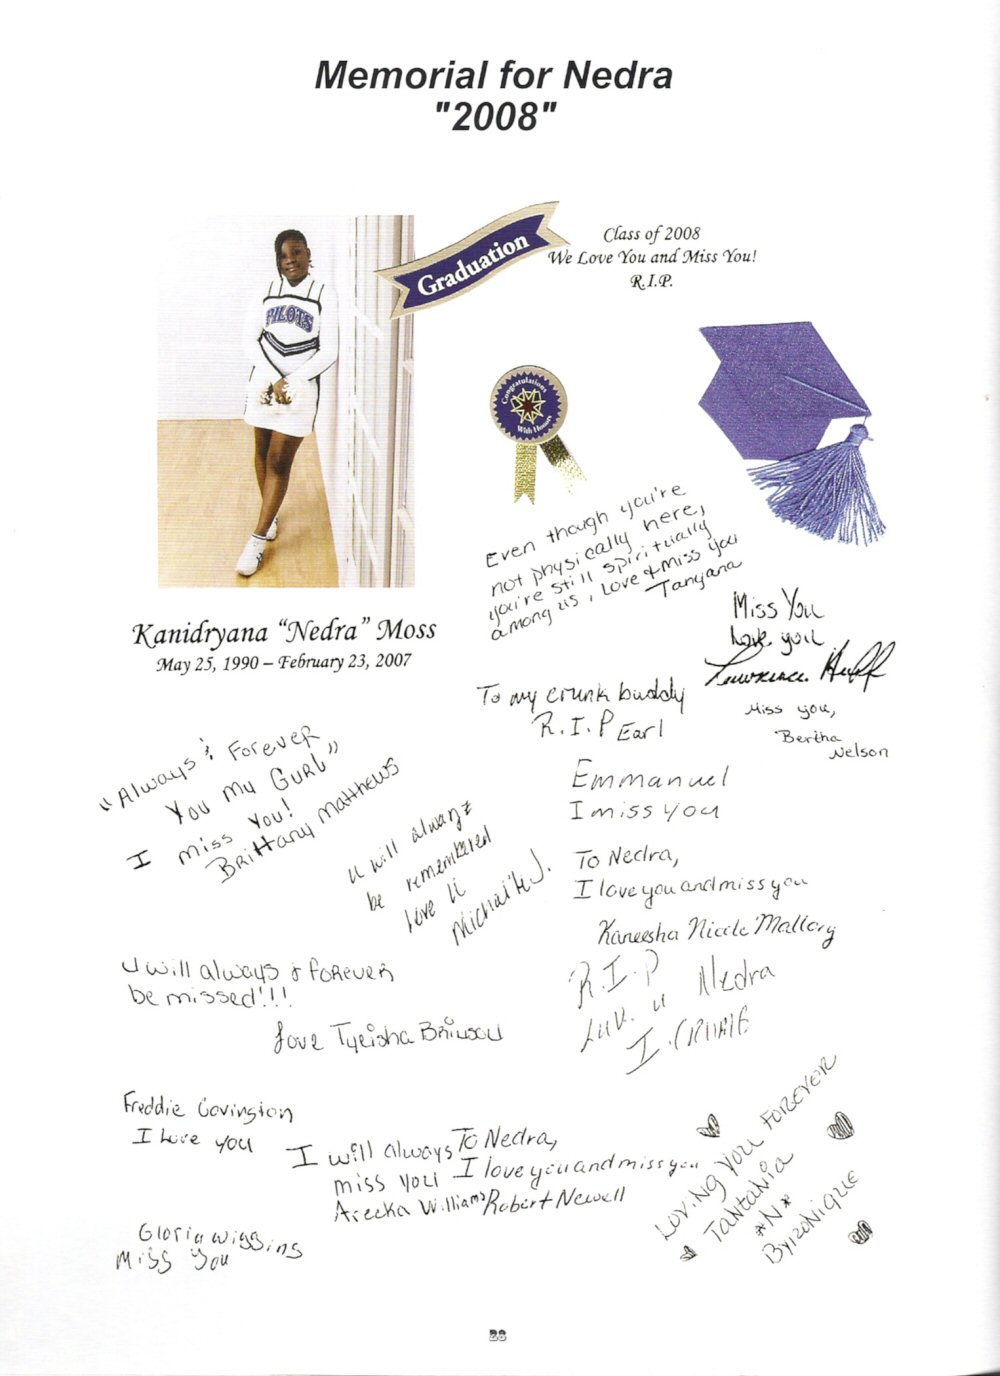 Memorial for Nedra
"2008"
Graduation
Class of 2008
We Love You and Miss You!
R.I.P.
PILOTS
Congratulations
With Honors
Kanidryana "Nedra" Moss
May 25, 1990 – February 23, 2007
Even though you're
not physically here,
you're still spiritually
among us, Love & Miss you
Tanyana
Miss You
Love you
Lawrence
Miss you,
Bertha
Nelson
To my crunk buddy
R.I.P Earl
"Always & Forever
You my Gurl"
I miss You!
Brittany Matthews
U will always
be remembered
love u
J.
Emmanuel
I miss you
To Nedra,
I love you and miss you
Kaneesha Nicole Mallory
R.I.P Nedra
Luv. u
U will always & forever
be missed!!!
Love Tyeisha Brinson
Freddie Covington
I Love you
I will always
miss you
Areeka Williams
To Nedra,
I love you and miss you
Robert Newell
Gloria Wiggins
Miss You
Loving You Forever
Tantania
*N*
Byizonique
28